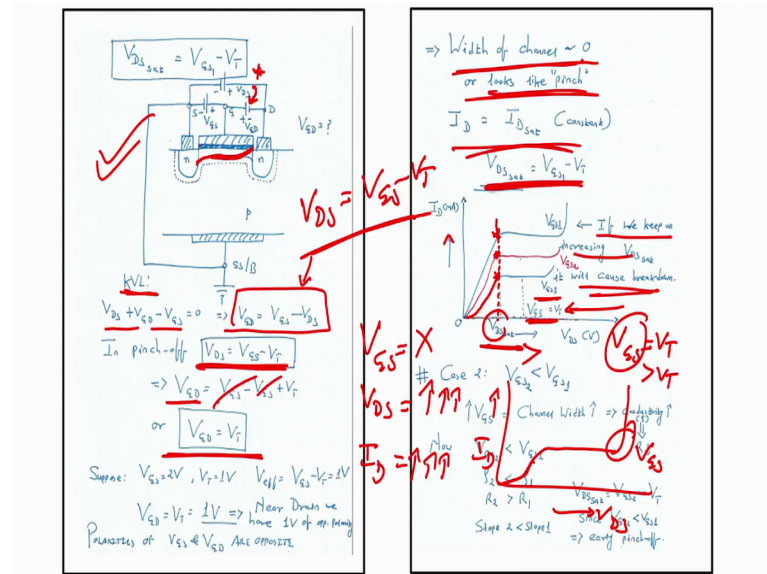 V_DS_sat = V_GS1 - V_T
S
G
D
V_GS
V_GD
V_GD = ?
n
n
p
SS/B
KVL:
V_DS + V_GD - V_GS = 0 => V_GD = V_GS - V_DS
In pinch-off V_DS = V_GS - V_T
=> V_GD = V_GS - V_GS + V_T
or V_GD = V_T
Suppose: V_GS = 2V, V_T = 1V V_eff = V_GS - V_T = 1V
V_GD = V_T = 1V => Near Drain we
have 1V of opp. polarity
POLARITIES OF V_GS & V_GD ARE OPPOSITE
V_DS = V_GS - V_T
=> Width of channel ~ 0
or looks like "pinch"
I_D = I_D_sat (constant)
V_DS_sat = V_GS1 - V_T
I_D (mA)
V_GS1 ← If we keep on
increasing V_DS_sat
V_GS2
it will cause breakdown.
V_GS3
V_GS = V_T
0
V_DS (V)
V_GS = V_T
> V_T
V_GS = X
V_DS = ↑↑↑
I_D = ↑↑↑
# Case 2: V_GS2 < V_GS1
↑V_GS = Channel Width ↑ => Conductivity ↑
Now
I_D
V_GS
R_2 > R_1
V_DS_sat = V_GS2 - V_T
V_DS
Since V_GS2 < V_GS1
Slope 2 < Slope 1
=> early pinch-off.